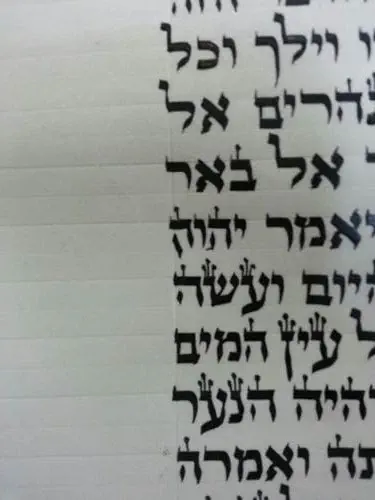 ו וילך וכל
נהרים אל
אל באר
ויאמר יהוה
היום ועשה
ל עין המים
והיה הנער
תה ואמרה